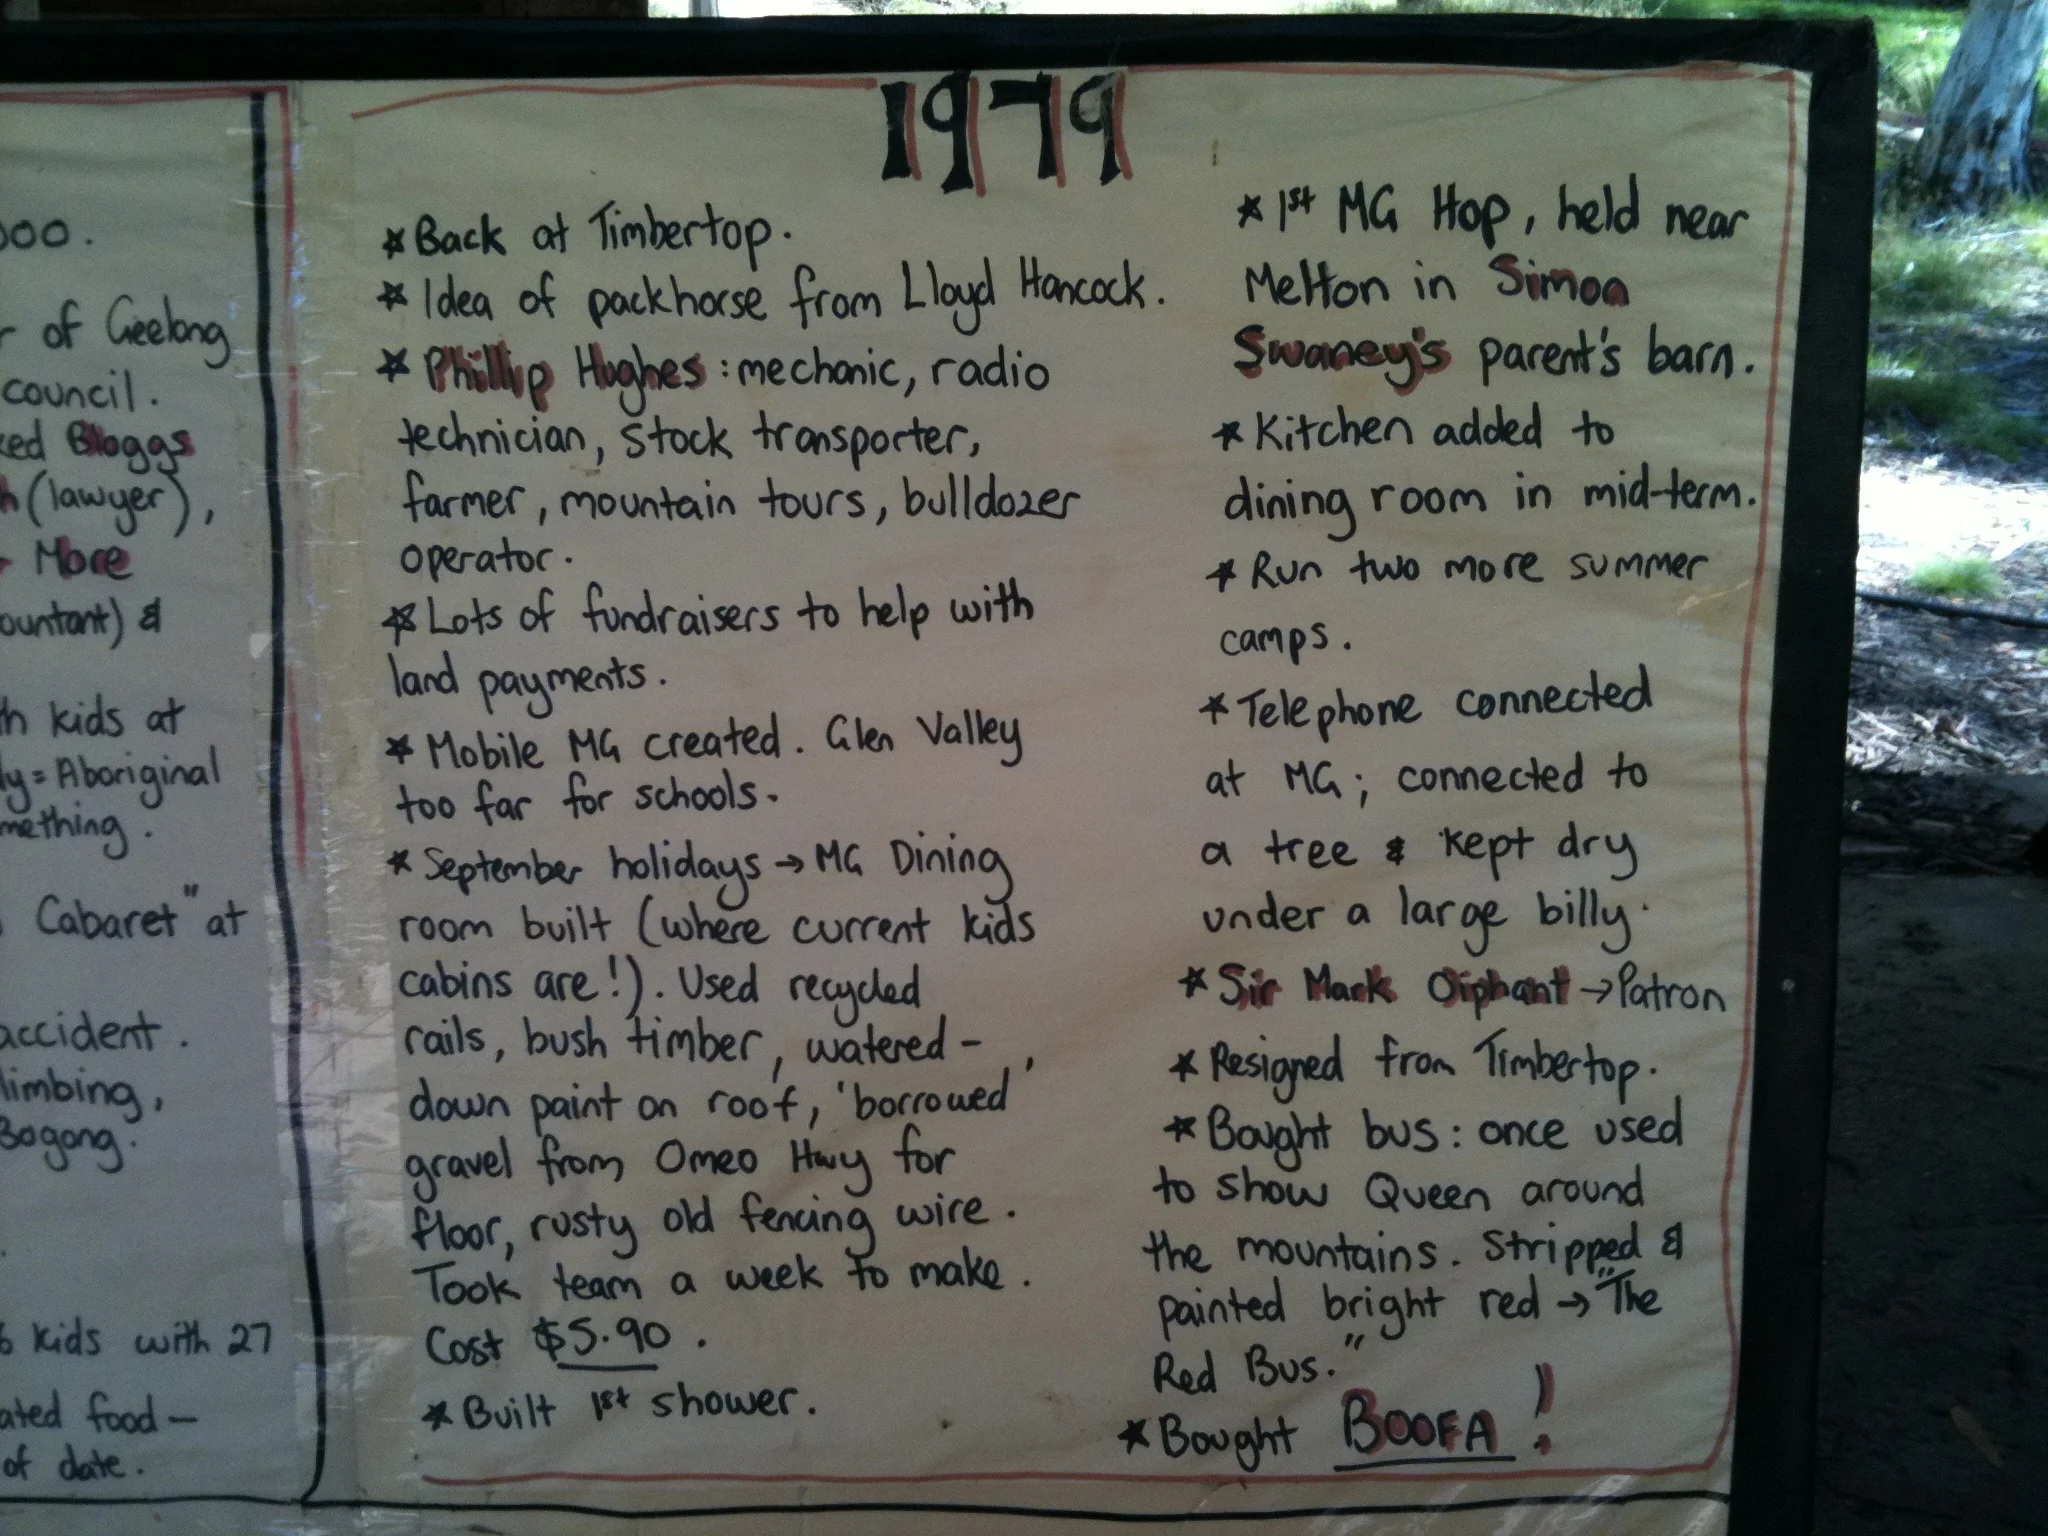 000.
r of Geelong
council.
ked Bloggs
h (lawyer),
r More
ountant) &
th kids at
ly = Aboriginal
mething.
Cabaret" at
accident.
limbing,
Bogong.
6 kids with 27
ated food -
of date.
1979
* Back at Timbertop.
* Idea of packhorse from Lloyd Hancock.
* Phillip Hughes : mechanic, radio
technician, stock transporter,
farmer, mountain tours, bulldozer
operator.
* Lots of fundraisers to help with
land payments.
* Mobile MG created. Glen Valley
too far for schools.
* September holidays → MG Dining
room built (where current kids
cabins are!). Used recycled
rails, bush timber, watered -
down paint on roof, 'borrowed'
gravel from Omeo Hwy for
floor, rusty old fencing wire.
Took team a week to make.
Cost $5.90.
* Built 1st shower.
* 1st MG Hop, held near
Melton in Simon
Swaney's parent's barn.
* Kitchen added to
dining room in mid-term.
* Run two more summer
camps.
* Telephone connected
at MG; connected to
a tree & kept dry
under a large billy.
* Sir Mark Oliphant → Patron
* Resigned from Timbertop.
* Bought bus: once used
to show Queen around
the mountains. Stripped &
painted bright red → "The
Red Bus."
* Bought BOOFA!